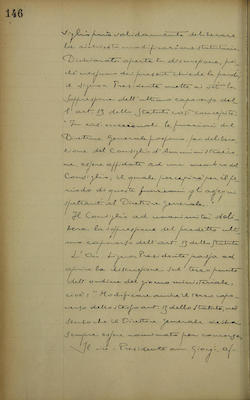 146
siglio può validamente deliberare
la richiesta modificazione statutaria.
Dichiarata aperta la discussione, poi-
chè nessuno dei presenti chiede la parola,
il signor Presidente mette ai voti la
soppressione dell'ultimo capoverso del-
l'art. 13 dello Statuto così concepito:
"In casi eccezionali le funzioni del
Direttore Generale possono per delibera-
zione del Consiglio d'Amministrazio-
ne essere affidate ad un membro del
Consiglio, il quale percepirà per il pe-
riodo di queste funzioni gli assegni
spettanti al Direttore Generale."
Il Consiglio ad unanimità deli-
bera la soppressione del predetto ulti-
mo capoverso dell'art. 13 dello Statuto.
L'On. Signor Presidente passa ad
aprire la discussione sul terzo punto
dell'ordine del giorno ministeriale,
cioè: "Modificazione anche il terzo capo-
verso dello stesso art. 13 dello Statuto, nel
senso che il Direttore Generale debba
sempre essere nominato per concorso."
Il vice-Presidente on. Giorgi, af-